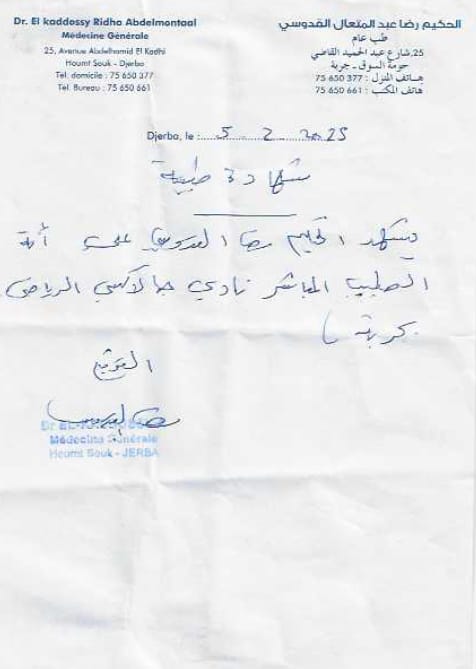 Dr. El kaddossy Ridha Abdelmontaal
Médecine Générale
25, Avenue Abdelhamid El Kadhi
Houmt Souk - Djerba
Tel. domicile : 75 650 377
Tel. Bureau : 75 650 661
الحكيم رضا عبد المتعال القدوسي
طب عام
25,شارع عبد الحميد القاضي
حومة السوق - جربة
هاتف المنزل : 377 650 75
هاتف المكتب : 661 650 75
Djerba, le : 5 2 2025
شهادة طبية
يشهد الحكيم رضا القدوسي على أنه
الطبيب المباشر نادي جالاكسي الرياضي
بجربة
التوقيع
Médecine Générale
Houmt Souk - JERBA